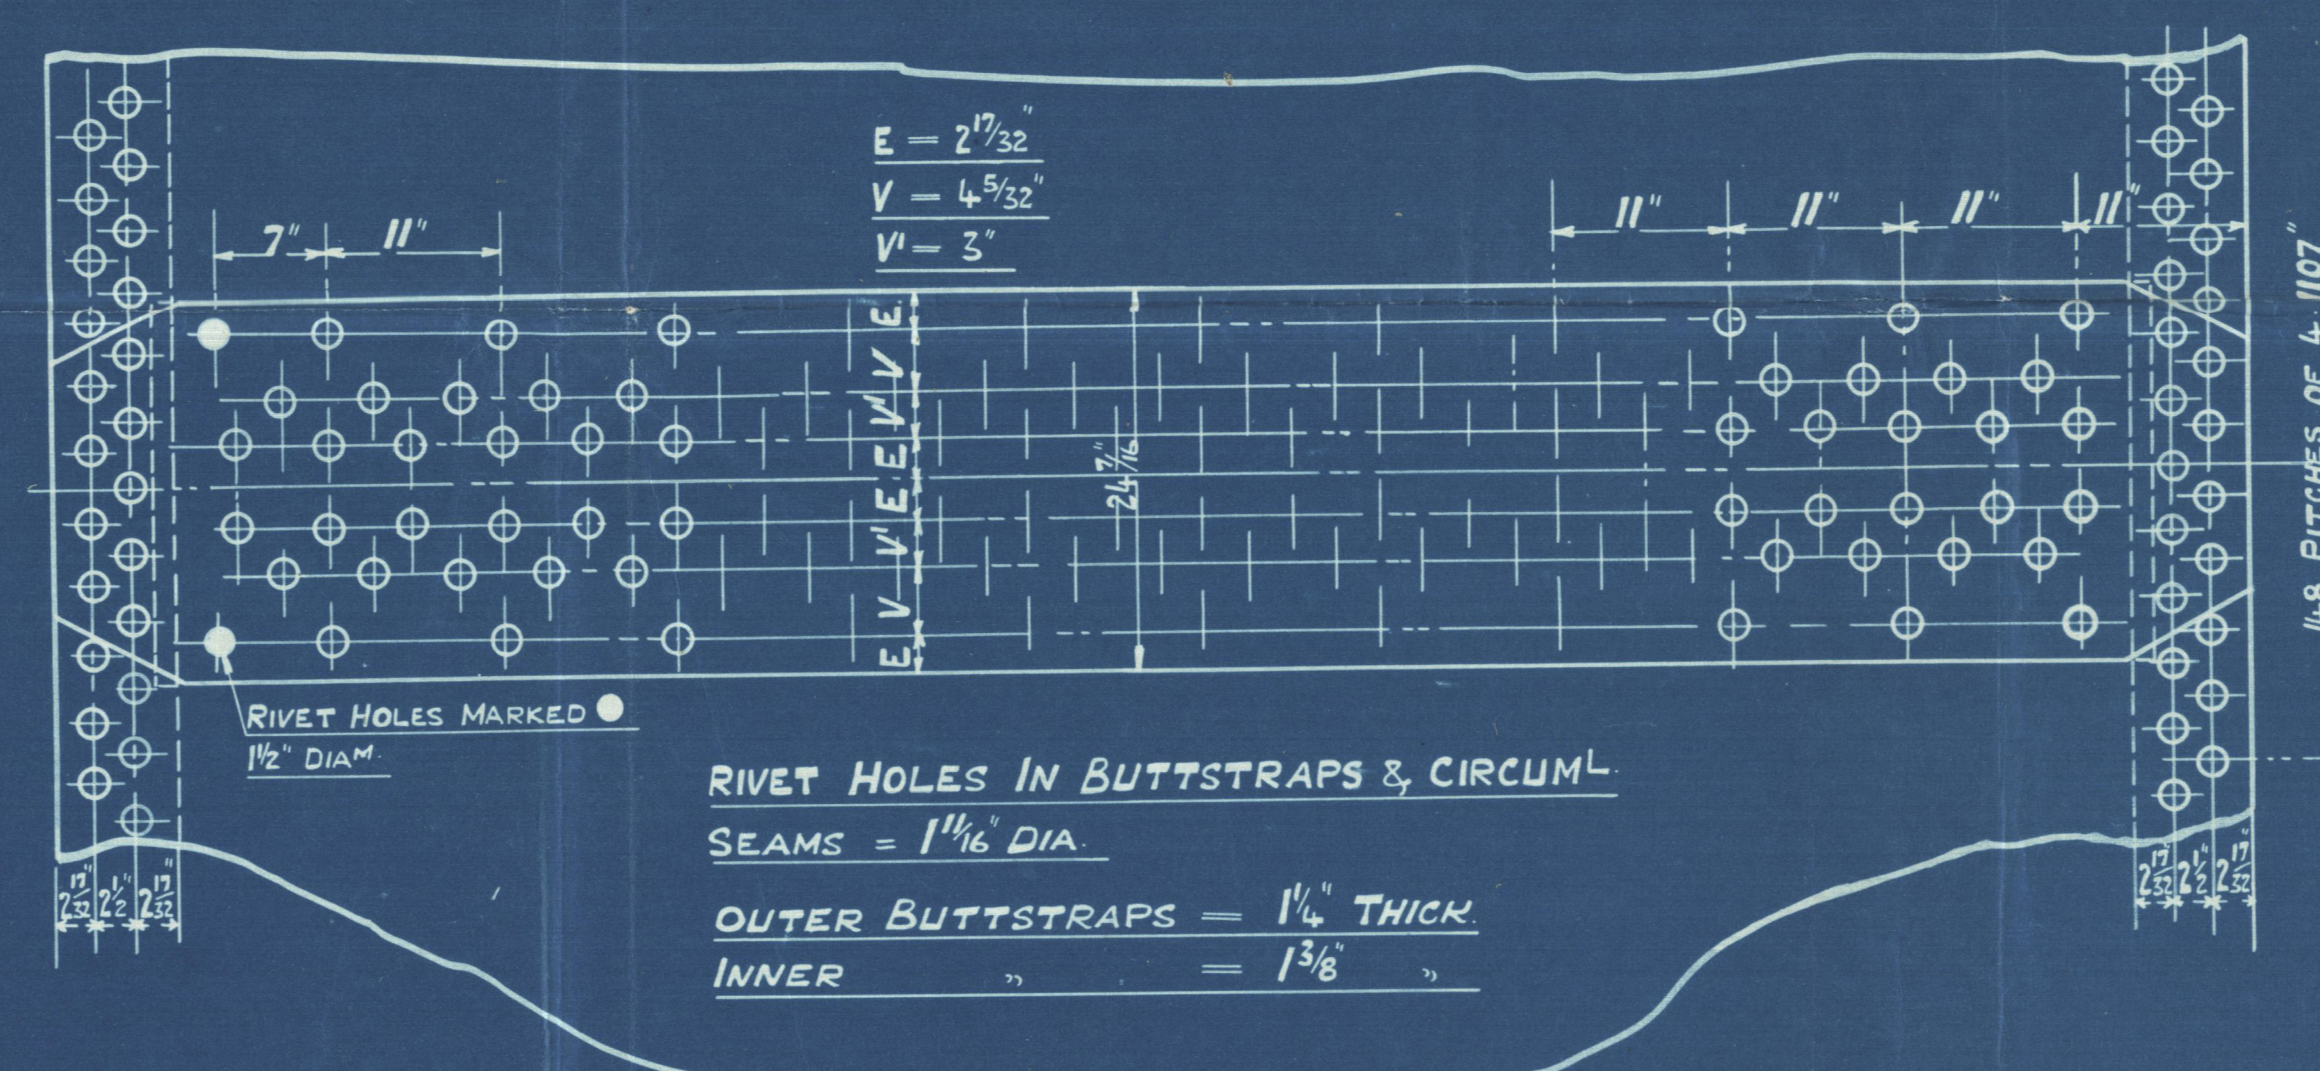 E = 2 17/32"
V = 4 5/32"
V' = 3"
7" 11" 11" 11" 11" 11"
E
V
V'
E
E
V'
V
E
24 7/16"
148 PITCHES OF 4.1107"
RIVET HOLES MARKED ●
1 1/2" DIAM.
RIVET HOLES IN BUTTSTRAPS & CIRCUML.
SEAMS = 1 11/16" DIA.
OUTER BUTTSTRAPS = 1 1/4" THICK.
INNER " = 1 3/8" "
2 17/32" 2 1/2" 2 17/32" 2 17/32" 2 1/2" 2 17/32"